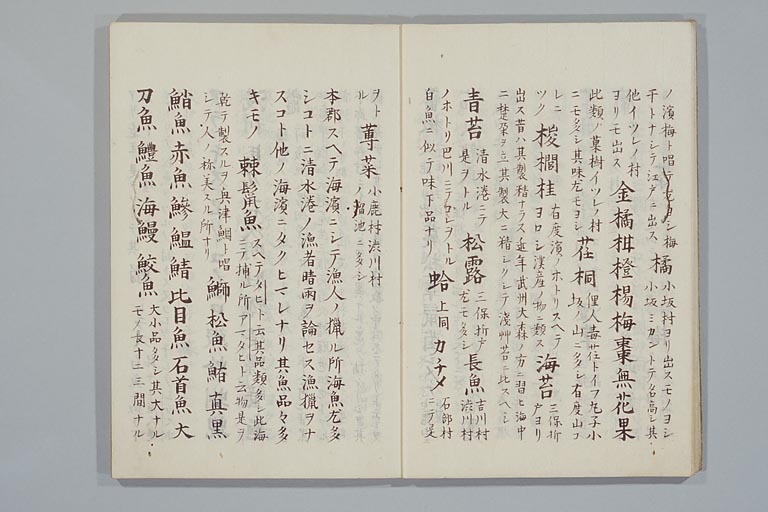 ノ濱梅ト唱テ尤ヨシ梅 橘 小坂村ヨリ出スモノヨシ
干トナシテ江戸ニ出ス 小坂ミカントテ名高シ其
他イツレノ村ヨリモ出ス 金橘 柑 橙 楊梅 棗 無花果
此類ノ菓樹イツレノ村ニモ多シ其味尤モヨシ 荏桐 俚人毒荏トイフ丸子小坂ノ山ニ多シ有度山コレニ
ツク 椶櫚 桂 有度濱ノホトリスヘテヨロシ漢産ノ物ニ類ス 海苔 三保折戸ヨリ
出ス昔ハ其製精ナラス近年武州大森ノ方ニ習ヒ海中
ニ楚朶ヲ立其製大ニ精シクシテ淺草苔ニ比スヘシ
青苔 清水港ニテ是ヲトル 松露 三保折戸尤モ多シ 長魚 吉川村渋川村
ノホトリ巴川ニテ ヲトル 蛤 上同 カチメ 石部村ニテ
白魚ニ似テ味下品ナリ
ヲトル 蓴菜 小鹿村渋川村ノ溜池ニ多シ
本郡スヘテ海濱ニシテ漁人ノ獵ル所海魚尤多
シコトニ清水港ノ漁者晴雨ヲ論セス漁獵ヲナ
スコト他ノ海濱ニタクヒマレナリ其魚品々多
キモノ 棘鬣魚 スヘテタヒト云其品類多シ此海ニテ捕ル所アマタヒト云物是ヲ
乾テ製スルヲ興津鯛ト唱
シテ人ノ称美スル所ナリ 鰤 松魚 鮪 真黒
鮹 赤魚 鯵 鰮 鯖 比目魚 石首魚 大
刀魚 鱧魚 海鰻 鮫魚 大小品多シ其大ナルモノ長十二三間ナル